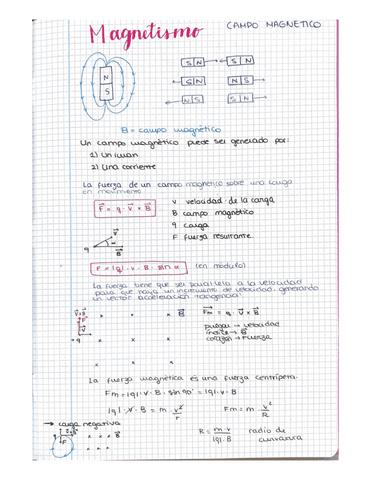 Magnetismo
CAMPO MAGNETICO
N
S
S N S N
S N N S
N S S N
B = campo magnético
Un campo magnético puede ser generado por:
1) Un iman
2) Una corriente
La fuerza de un campo magnético sobre una carga
en movimiento
F = q · V × B
V velocidad de la carga
B campo magnético
q carga
F fuerza resultante
F = |q| · v · B · sin α (en modulo)
La fuerza tiene que ser paralela a la velocidad
para que haya un incremento de velocidad, generando
un vector aceleracion tangencial
x x x B
Fm = q · V × B
pulgar → velocidad
indice → B
corazon → Fuerza
La fuerza magnética es una fuerza centrípeta.
Fm = |q| · v · B · sin 90°
|q| · V · B = m · v²/r
Fm = m · v²/R
→ carga negativa
R = m · v / |q| · B radio de
curvatura